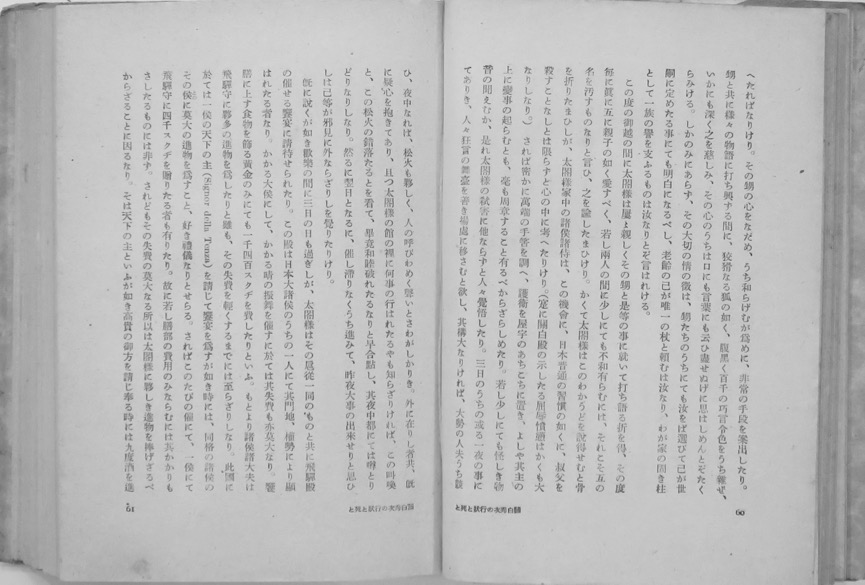 へたればなりけり。その甥の心をなだめ、うち和らげむが爲めに、非常の手段を案出したり。
甥と共に樣々の物語に打ち興ずる間に、狡猾なる狐の如く、腹黑く百千の巧言令色をうち雜ぜ、
いかにも深く之を慈しみ、その心のうちは口にも言葉にも云ひ盡せぬげに思はしめんとぞたく
らみける。しかのみにあらず、その大切の情の徵は、甥たちのうちにても汝をば選びて己が世
嗣に定めたる事にても明白になるべし、老齡の己が唯一の杖と賴むは汝なり、わが家の開き柱
として一族の譽を支ふるものは汝なりとぞ言はれける。
この度の御越の間に太閤樣は屢〻親しくその甥と是等の事に就いて打ち語る折を得、その度
每に眞に互に親子の如く愛すべく、若し兩人の間に少しにても不和有らむには、それこそ互の
名を汚すものなりと言ひ、之を諭したまひけり。かくて太閤樣はこのわかうどを說得せむと骨
を折りたまひしが、太閤樣家中の諸侯諸侍は、この機會に、日本普通の習慣の如くに、叔父を
殺すことなしとは限らずと心の中に考へたりけり。(定に關白殿の示したる屈辱憤懣はかくも大
なりしなり。) されば密かに萬端の手筈を調へ、護衞を屋宇のあちこちに置き、よしや其主の
上に變事の起らむとも、毫も周章すること有るべからざらしめたり。若し少しにても怪しき物
音の聞えむか、是れ太閤樣の弑害に他ならずと人々覺悟したり。三日のうちの或る一夜の事に
てありき、人々狂言の舞臺を善き場處に移さむと欲し、其構大なりければ、大勢の人夫うち
60
關白秀次の行狀と死と
ひ、夜中なれば、松火も夥しく、人の呼びわめく聲いとさわがしかりき。外に在りし者共、旣
に疑心を抱きてあり、且つ太閤樣の館の裡に何事の行はれたるやも知らざりければ、この叫喚
と、この松火の錯落たるとを看て、畢竟和睦破れたるなりと早合點し、其夜中都にては專とり
どりなりしなり。然るに翌日となるに、催し滯りなくうち進みて、昨夜大事の出來せりと思ひ
しは己等が邪見に外ならざりしを覺りたりけり。
旣に說くが如き歡樂の間に三日の日も過ぎしが、太閤樣はその扈從一同のものと共に飛驒殿
の催せる饗宴に請待せられたり。この殿は日本大諸侯のうちの一人にて其門地、權勢により顯
はれたる者なり。かかる大侯にして、かかる晴の振舞を催すに於ては其失費も亦莫大なり。饗
膳に上す食物を飾る黃金のみにても一千四百スクヂを費したりといふ。もとより諸侯諸大夫は
飛驒守に夥多の進物を爲したりと雖も、その失費を輕くするまでには至らざりしなり。此國に
於ては一侯の天下の主 (Signor della Tenza) を請じて饗宴を爲すが如き時には、同格の諸侯の
その侯に莫大の進物を爲すこと、好き禮儀なりとせらる。さればこのたびの催にて、一侯にて
飛驒守に四千スクヂを贈りたる者も有りたり。故に若し膳部の費用のみならむには其かかりも
さしたるものには非ず。されどもその失費の莫大なる所以は太閤樣に夥しき進物を捧げざるべ
からざることに因るなり。そは天下の主といふが如き高貴の御方を請じ奉る時には九度酒を進
61
關白秀次の行狀と死と